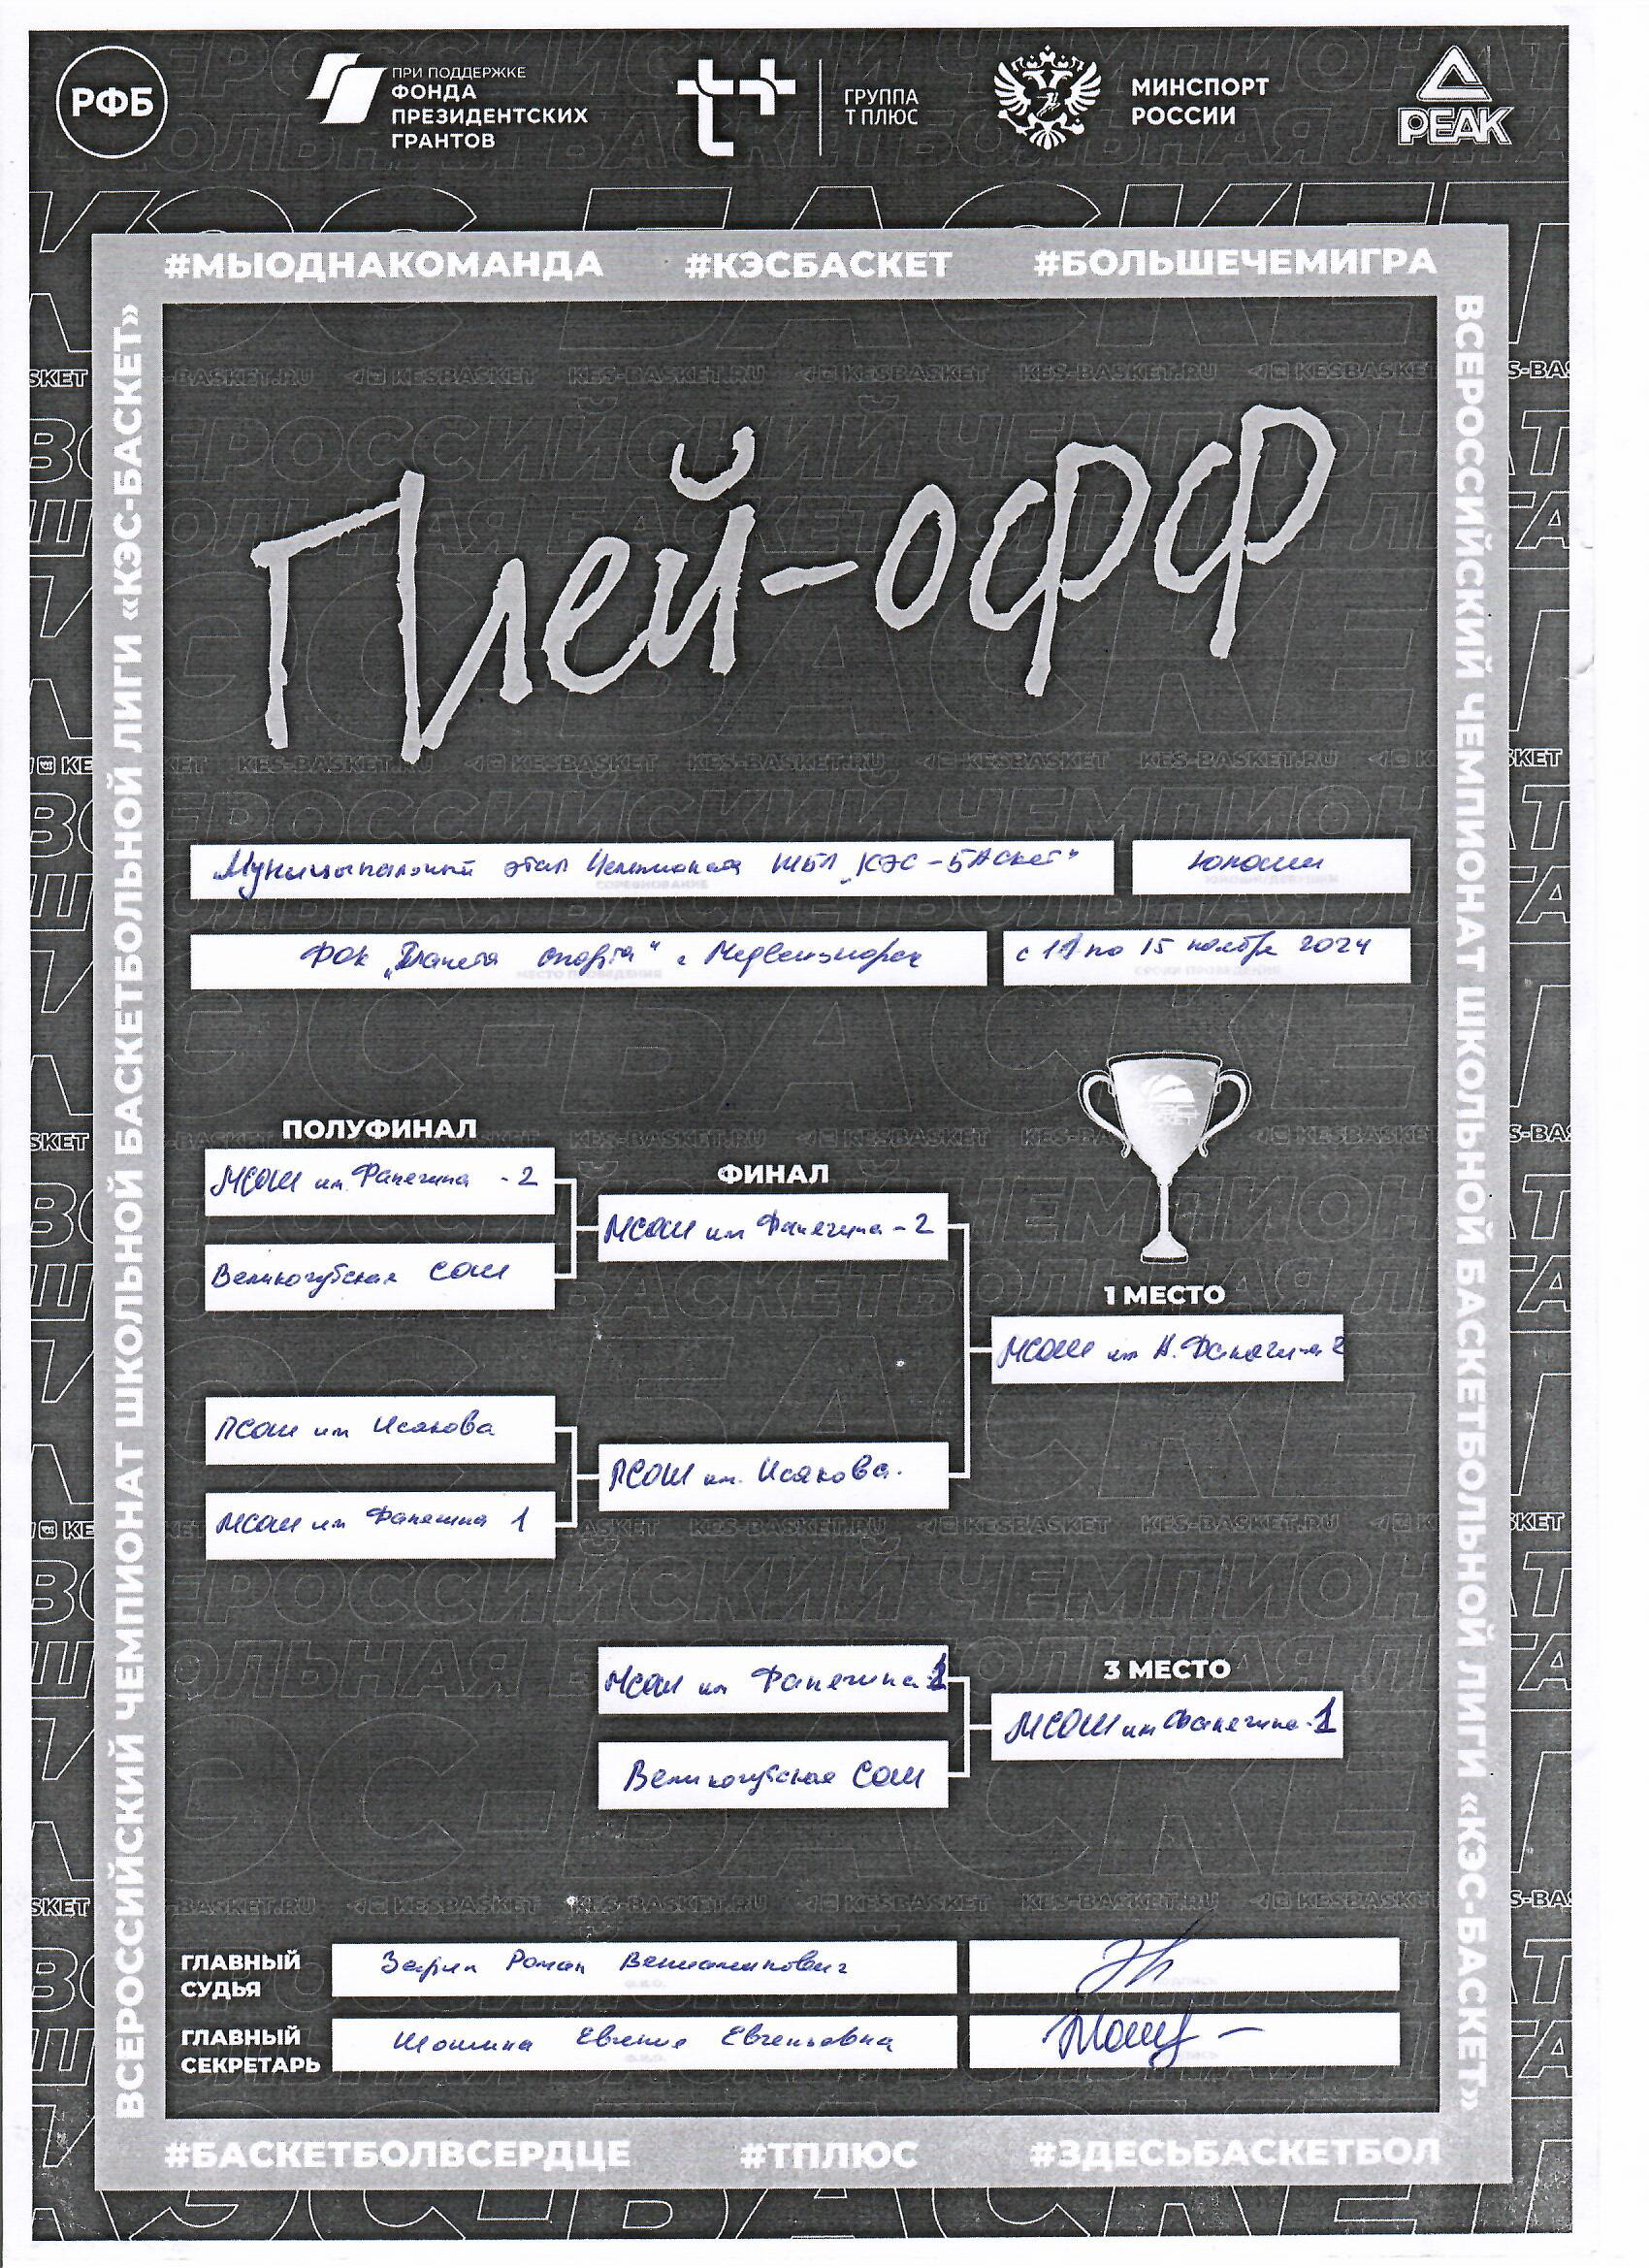 РФБ
ПРИ ПОДДЕРЖКЕ
ФОНДА
ПРЕЗИДЕНТСКИХ
ГРАНТОВ
ГРУППА
Т ПЛЮС
МИНСПОРТ
РОССИИ
PEAK
#МЫОДНАКОМАНДА #КЭСБАСКЕТ #БОЛЬШЕЧЕМИГРА
ВСЕРОССИЙСКИЙ ЧЕМПИОНАТ ШКОЛЬНОЙ БАСКЕТБОЛЬНОЙ ЛИГИ «КЭС-БАСКЕТ»
ВСЕРОССИЙСКИЙ ЧЕМПИОНАТ ШКОЛЬНОЙ БАСКЕТБОЛЬНОЙ ЛИГИ «КЭС-БАСКЕТ»
Плей-офф
Муниципальный этап Чемпионата ШБЛ "КЭС-БАскет" Юноши
ФОК "Планета спорта" г Медвежьегорск с 11 по 15 ноября 2024
ПОЛУФИНАЛ
МСОШ им. Фанягина - 2
Великогубская СОШ
ФИНАЛ
МСОШ им Фанягина - 2
1 МЕСТО
МСОШ им Н. Фанягина 2
ПСОШ им Исакова
МСОШ им Фанягина 1
ПСОШ им. Исакова.
МСОШ им Фанягина 1
Великогубская СОШ
3 МЕСТО
МСОШ им Фанягина - 1
ГЛАВНЫЙ
СУДЬЯ
Роман Вениаминович
ГЛАВНЫЙ
СЕКРЕТАРЬ
Шошина Евгения Евгеньевна
#БАСКЕТБОЛВСЕРДЦЕ #ТПЛЮС #ЗДЕСЬБАСКЕТБОЛ